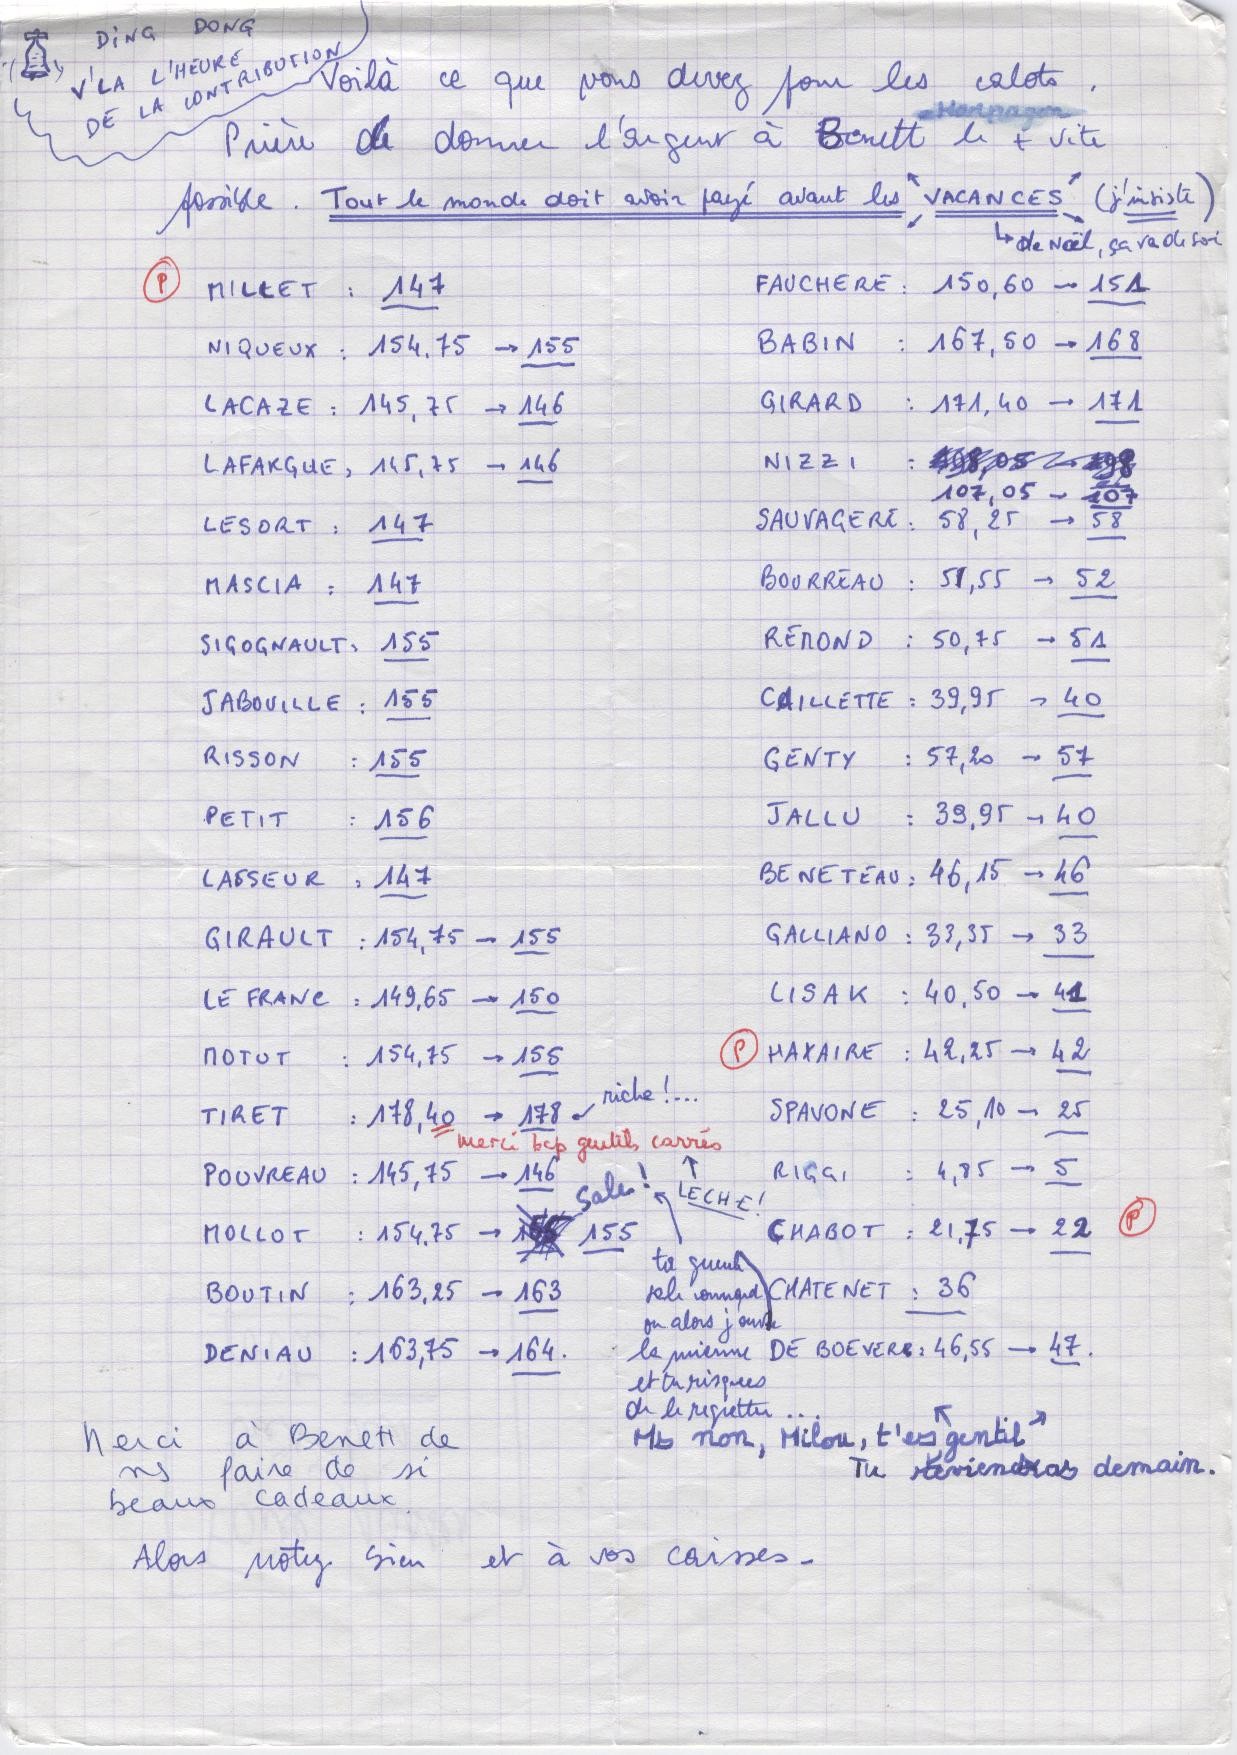 DING DONG
V'LA L'HEURE
DE LA CONTRIBUTION
Voilà ce que vous devez pour les calots.
Harpagon
Prière de donner l'argent à Benett le + vite
possible. Tout le monde doit avoir payé avant les VACANCES (j'insiste)
↳ de Noël, ça va de soi
P MILLET : 147
NIQUEUX : 154,75 → 155
LACAZE : 145,75 → 146
LAFARGUE : 145,75 → 146
LESORT : 147
MASCIA : 147
SIGOGNAULT : 155
JABOUILLE : 155
RISSON : 155
PETIT : 156
LASSEUR : 147
GIRAULT : 154,75 → 155
LE FRANC : 149,65 → 150
MOTUT : 154,75 → 155
TIRET : 178,40 → 178 riche !...
merci bcp gentils carrés
↑ LECHE !
POUVREAU : 145,75 → 146
Sale !
MOLLOT : 154,75 → 155
BOUTIN : 163,25 → 163
DENIAU : 163,75 → 164.
FAUCHERE : 150,60 → 151
BABIN : 167,50 → 168
GIRARD : 171,40 → 171
NIZZI : 198,05 → 198
107,05 → 107
SAUVAGERE : 58,25 → 58
BOURREAU : 51,55 → 52
RÉMOND : 50,75 → 51
CAILLETTE : 39,95 → 40
GENTY : 57,20 → 57
JALLU : 39,95 → 40
BENETEAU : 46,15 → 46
GALLIANO : 33,35 → 33
LISAK : 40,50 → 41
P HAXAIRE : 42,25 → 42
SPAVONE : 25,10 → 25
RIGGI : 4,85 → 5
CHABOT : 21,75 → 22 P
CHATENET : 36
DE BOEVERE : 46,55 → 47.
ta gueule
sale connard
ou alors j'ouvre
la mienne
et tu risques
de le regretter...
Ms non, Milou, t'es gentil
Tu reviendras demain.
Merci à Benett de
ns faire de si
beaux cadeaux.
Alors notez bien et à vos caisses.